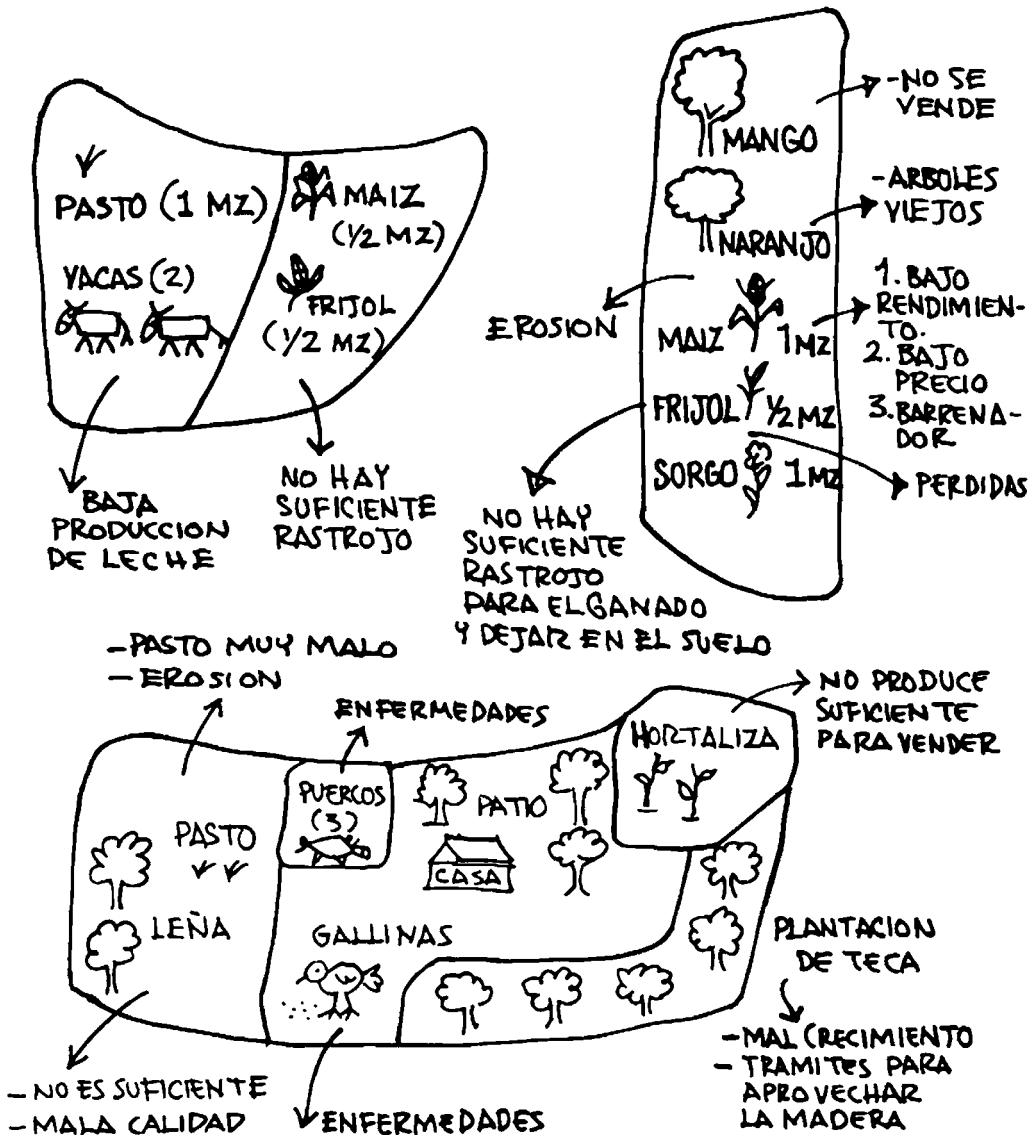 PASTO (1 MZ)
VACAS (2)
MAIZ
(1/2 MZ)
FRIJOL
(1/2 MZ)
BAJA
PRODUCCION
DE LECHE
NO HAY
SUFICIENTE
RASTROJO
MANGO
-NO SE
VENDE
NARANJO
-ARBOLES
VIEJOS
EROSION
MAIZ 1 MZ
1. BAJO
RENDIMIEN-
TO.
2. BAJO
PRECIO
3. BARRENA-
DOR
FRIJOL 1/2 MZ
SORGO 1 MZ
PERDIDAS
NO HAY
SUFICIENTE
RASTROJO
PARA EL GANADO
Y DEJAR EN EL SUELO
-PASTO MUY MALO
-EROSION
ENFERMEDADES
NO PRODUCE
SUFICIENTE
PARA VENDER
HORTALIZA
PUERCOS
(3)
PATIO
CASA
PASTO
LEÑA
GALLINAS
PLANTACION
DE TECA
-MAL CRECIMIENTO
-TRAMITES PARA
APROVECHAR
LA MADERA
-NO ES SUFICIENTE
-MALA CALIDAD
ENFERMEDADES